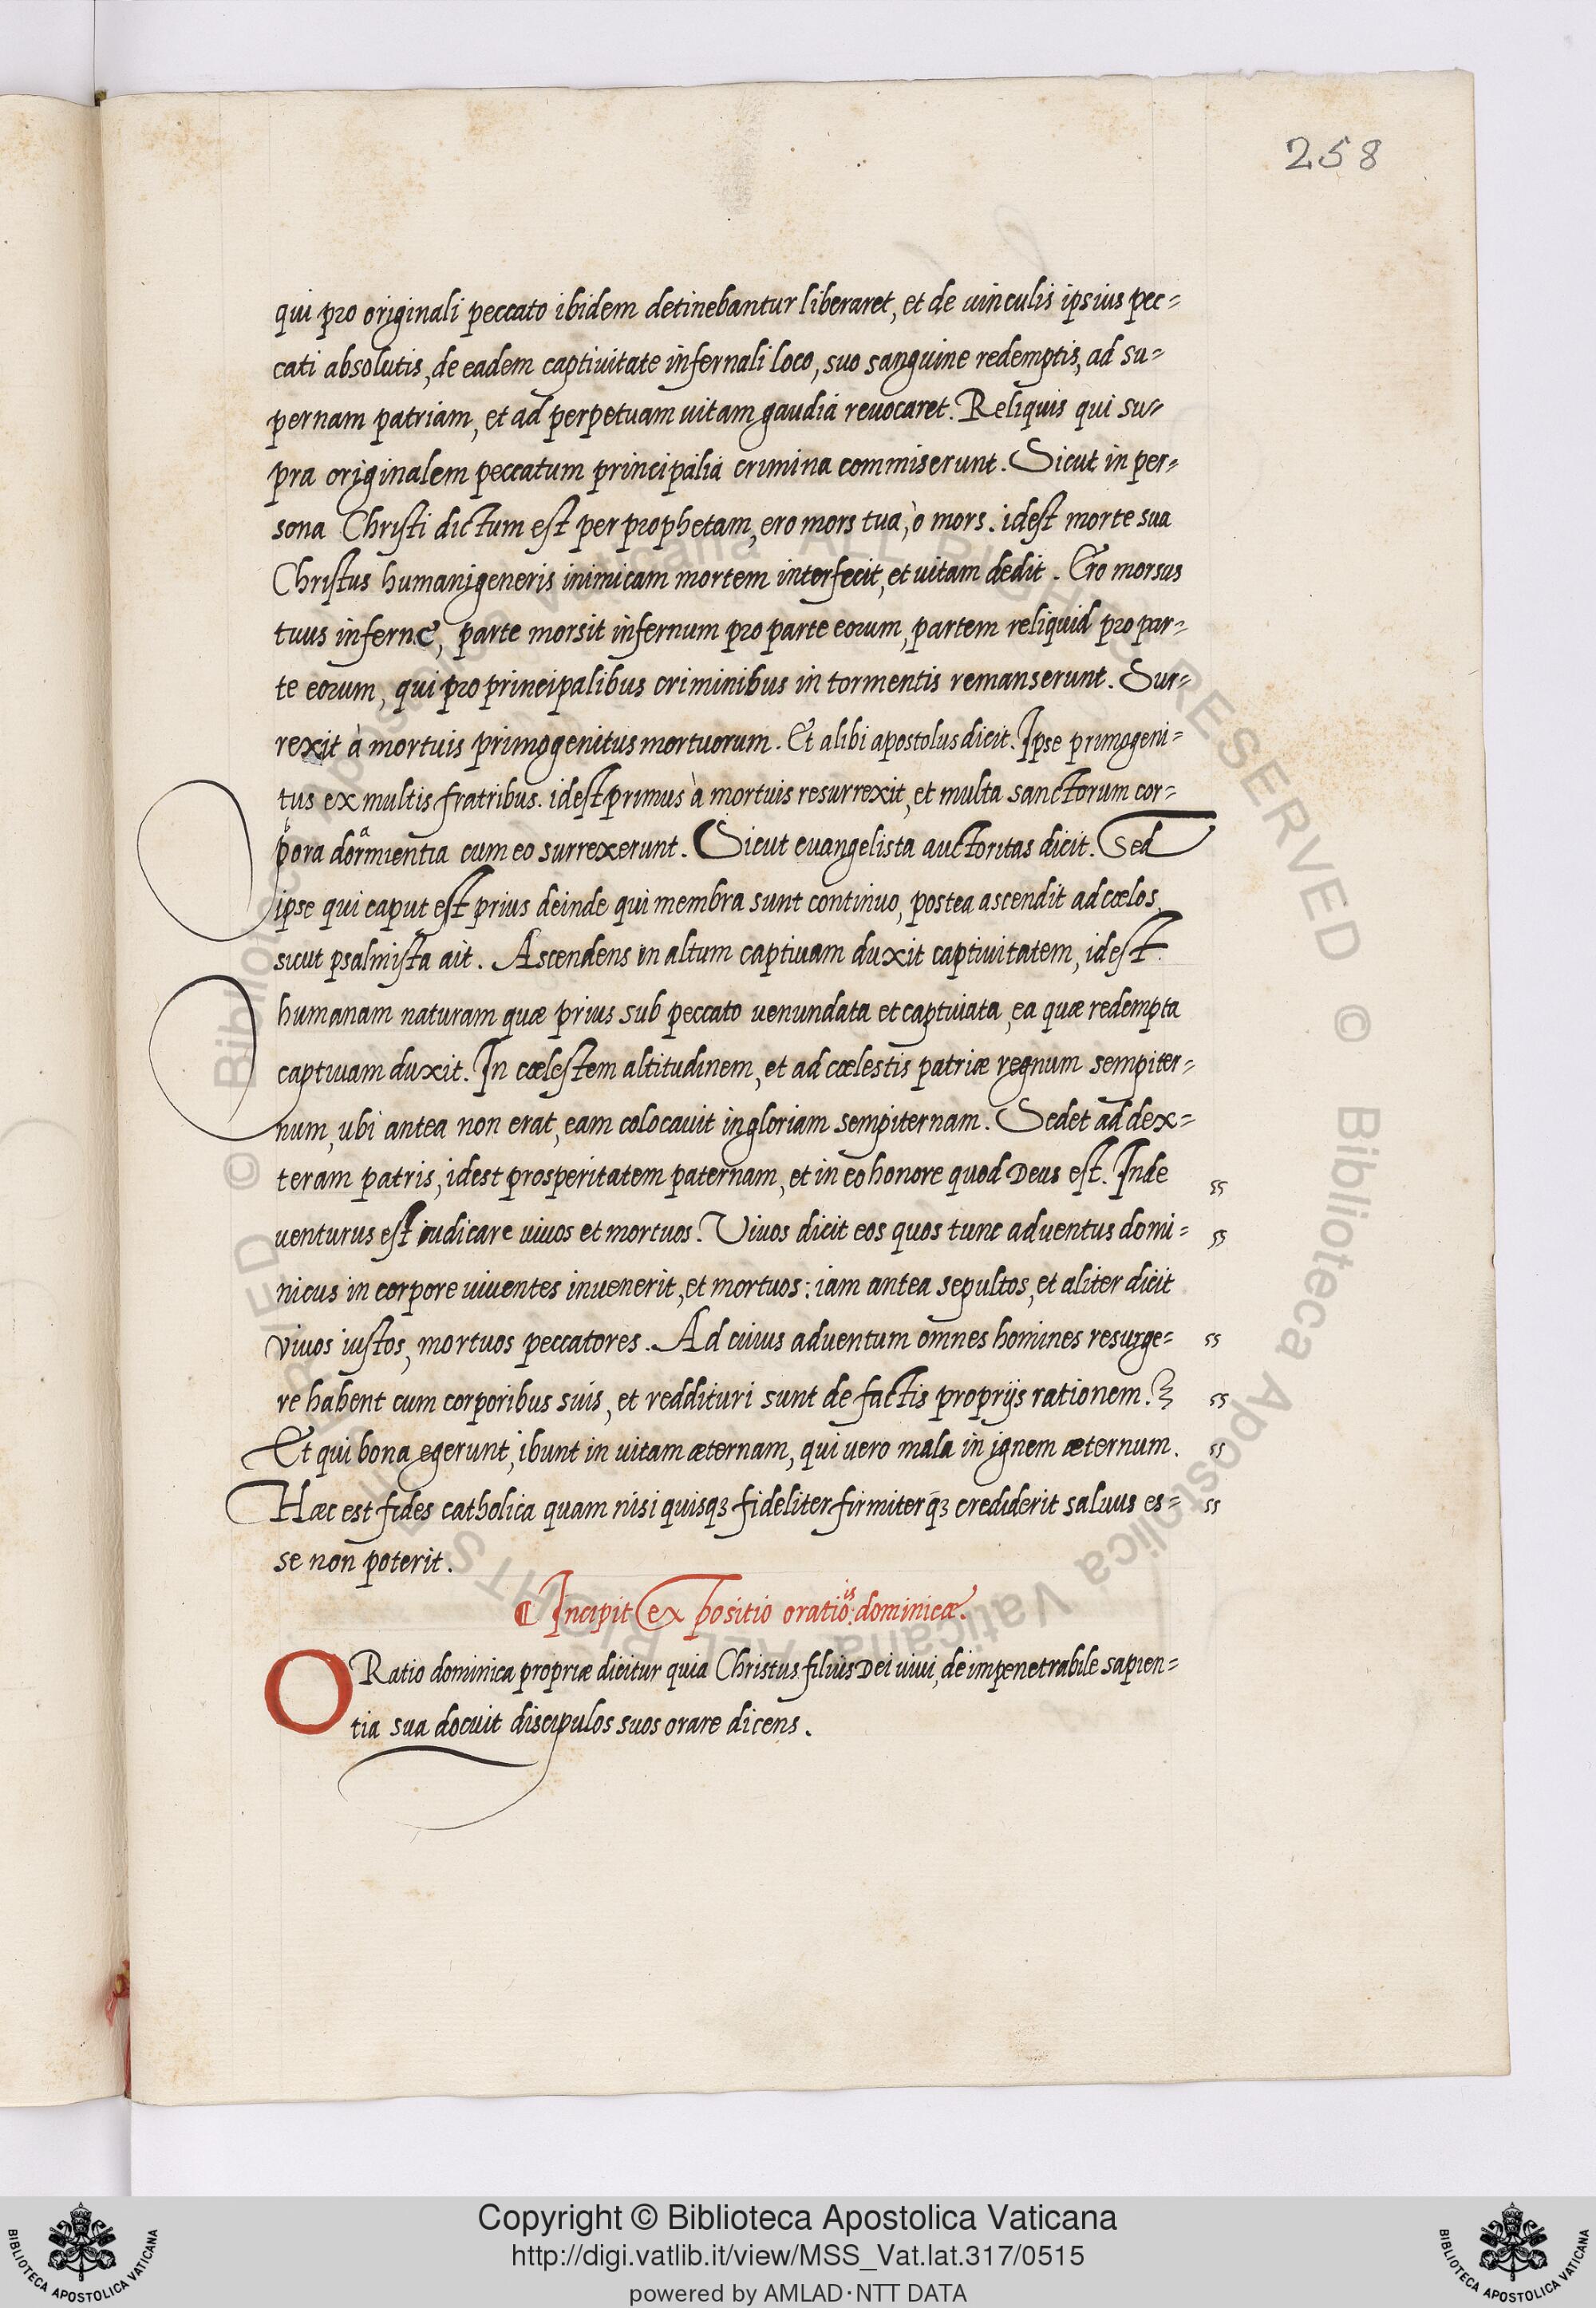 258
qui pro originali peccato ibidem detinebantur liberaret, et de uinculis ipsius pec=
cati absolutis, de eadem captiuitate infernali loco, suo sanguine redemptis, ad su=
pernam patriam, et ad perpetuam uitam gaudia reuocaret. Reliquis qui su=
pra originalem peccatum principalia crimina commiserunt. Sicut in per=
sona Christi dictum est per prophetam, ero mors tua, ò mors. idest morte sua
Christus humani generis inimicam mortem interfecit, et uitam dedit. Ero morsus
tuus inferne, parte morsit infernum pro parte eorum, partem reliquid pro par=
te eorum, qui pro principalibus criminibus in tormentis remanserunt. Sur=
rexit à mortuis primogenitus mortuorum. Et alibi apostolus dicit. Ipse primogeni=
tus ex multis fratribus. idest primus à mortuis resurrexit, et multa sanctorum cor=
pora dormientia cum eo surrexerunt. Sicut euangelista auctoritas dicit. Sed
ipse qui caput est prius deinde qui membra sunt continuo, postea ascendit ad cœlos,
sicut psalmista ait. Ascendens in altum captiuam duxit captiuitatem, idest
humanam naturam quæ prius sub peccato uenundata et captiuata, ea quæ redempta
captiuam duxit. In cœlestem altitudinem, et ad cœlestis patriæ regnum sempiter=
num, ubi antea non erat, eam colocauit in gloriam sempiternam. Sedet ad dex=
teram patris, idest prosperitatem paternam, et in eo honore quod Deus est. Inde
uenturus est iudicare uiuos et mortuos. Viuos dicit eos quos tunc aduentus domi=
nicus in corpore uiuentes inuenerit, et mortuos: iam antea sepultos, et aliter dicit
viuos iustos, mortuos peccatores. Ad cuius aduentum omnes homines resurge=
re habent cum corporibus suis, et reddituri sunt de factis proprijs rationem.
Et qui bona egerunt, ibunt in uitam æternam, qui uero mala in ignem æternum.
Hæc est fides catholica quam nisi quisqȝ fideliter firmiterqȝ crediderit saluus es=
se non poterit.
¶ Incipit expositio oratiois dominicæ.
ORatio dominica propriæ dicitur quia Christus filius Dei uiui, de impenetrabile sapien=
tia sua docuit discipulos suos orare dicens.
© Biblioteca Apostolica Vaticana ALL RIGHTS RESERVED
Copyright © Biblioteca Apostolica Vaticana
http://digi.vatlib.it/view/MSS_Vat.lat.317/0515
powered by AMLAD·NTT DATA
BIBLIOTECA APOSTOLICA VATICANA
BIBLIOTECA APOSTOLICA VATICANA